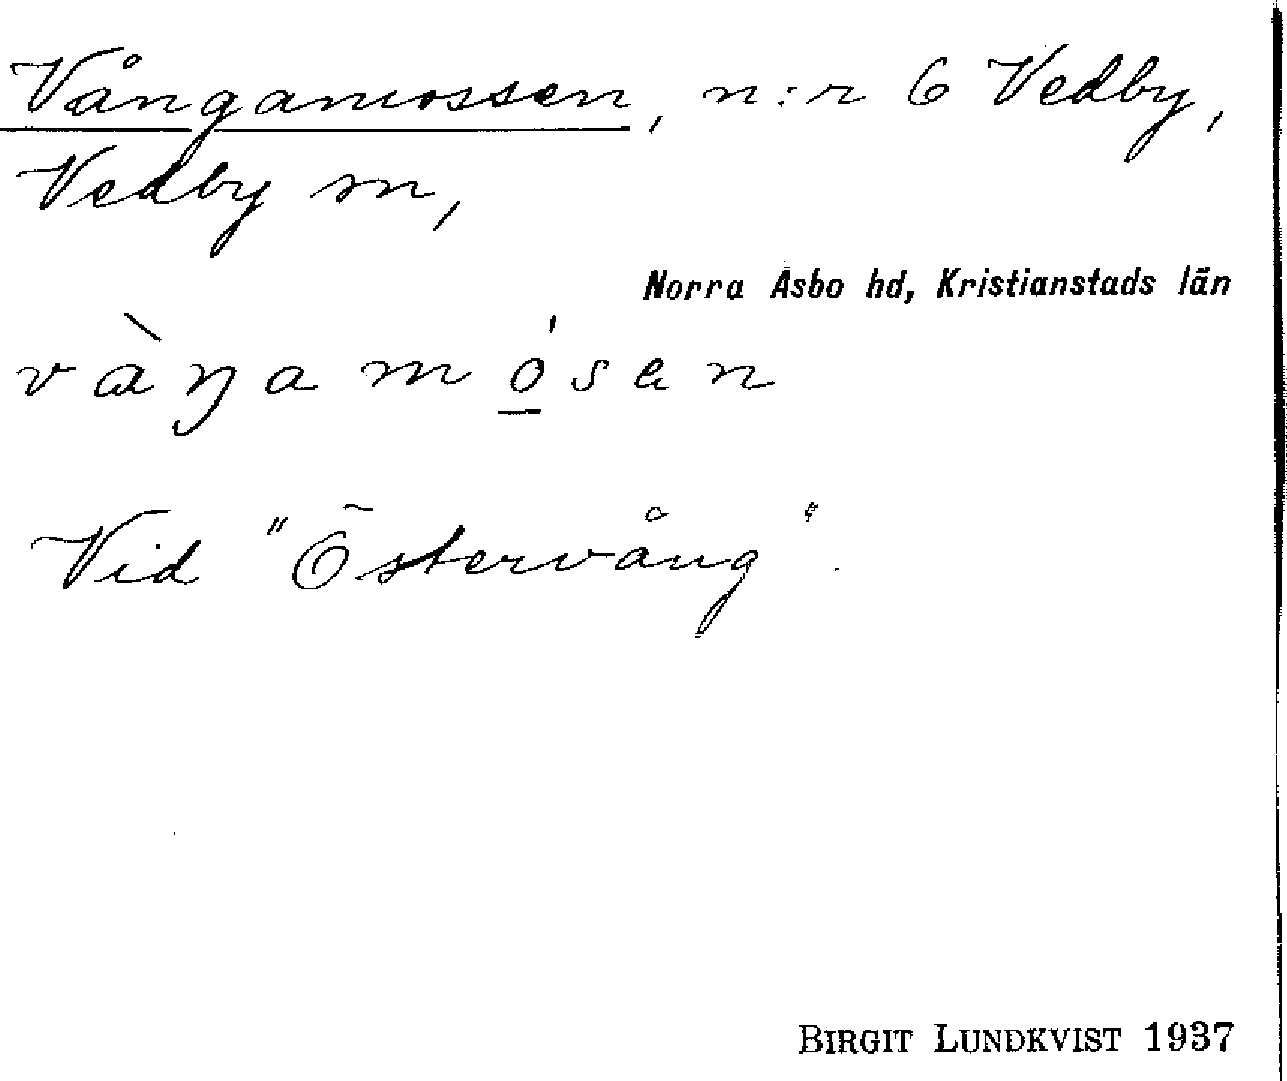 Vångamossen, n:r 6 Vedby,
Vedby sn,
Norra Åsbo hd, Kristianstads län
vàŋa mó̲sen
Vid "Östervång".
BIRGIT LUNDKVIST 1937